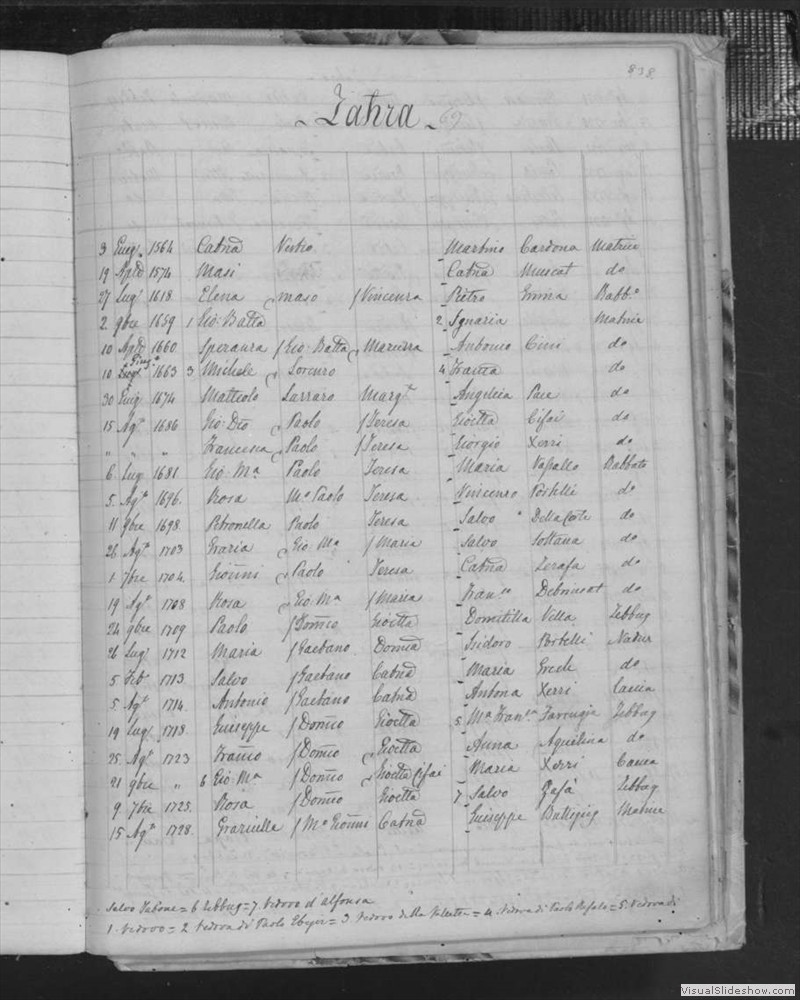 838
Zahra 69
3 Giug. 1564 Catña Nestio Martino Cardona Matrice
19 Aple 1574 Masi Catña Muscat do
27 Lug. 1618 Elena maso / Vincenza Pietro Emma Rabbo
2 9bre 1659 1 Gio: Batta 2 Ignazia Matrice
10 Aple 1660 Speranza / Gio: Batta Maruzza Antonio Cini do
10 Giug. 1663 3 Michele Lorenzo 4 do
30 Giug. 1674 Matteolo Lazzaro Margta Angelica Pace do
15 Agto 1686 Gio: Dro Paolo / Teresa Gioetta Cifai do
" " " Francesca Paolo / Teresa Giorgio Xerri do
6 Lug. 1681 Gio: Ma Paolo Teresa Maria Vassallo Rabbato
5 Agto 1696 Rosa Mo Paolo Teresa Vincenzo Portelli do
11 9bre 1698 Petronella Paolo Teresa Salvo Della Corte do
26 Agto 1703 Grazia Gio Ma / Maria Salvo Soltana do
1 7bre 1704 Gioñni Paolo Teresa Catña Zerafa do
19 Agto 1708 Rosa Gio Ma / Maria Franco Debrincat do
24 9bre 1709 Paolo / Domco Gioetta Domitilla Vella Zebbug
26 Lug. 1712 Maria / Gaetano Domca Isidoro Portelli Nadur
5 Feb. 1713 Salvo / Gaetano Catña Maria Grech do
5 Agto 1714 Antonio / Gaetano Catña Antona Xerri Caccia
19 Lug. 1718 Giuseppe / Domco Gioetta 5 Ma Franca Farrugia Zebbug
25 Agto 1723 Franco / Domco Gioetta Anna Aquilina do
21 9bre " 6 Gio Ma / Domco Gioetta Cifai Maria Xerri Caccia
9 7bre 1725 Rosa / Domco Gioetta 7 Salvo Zebbug
15 Agto 1728 Graziulla / Mo Gioñni Catña Giuseppe Buttigieg Matrice
Salvo Tabone = 6 Zebbug = 7. Vedovo d'Alfonsa
1. Vedovo = 2 Vedova di Paolo = 3 Vedovo della = 4 Vedova di Paolo = 5. Vedova di